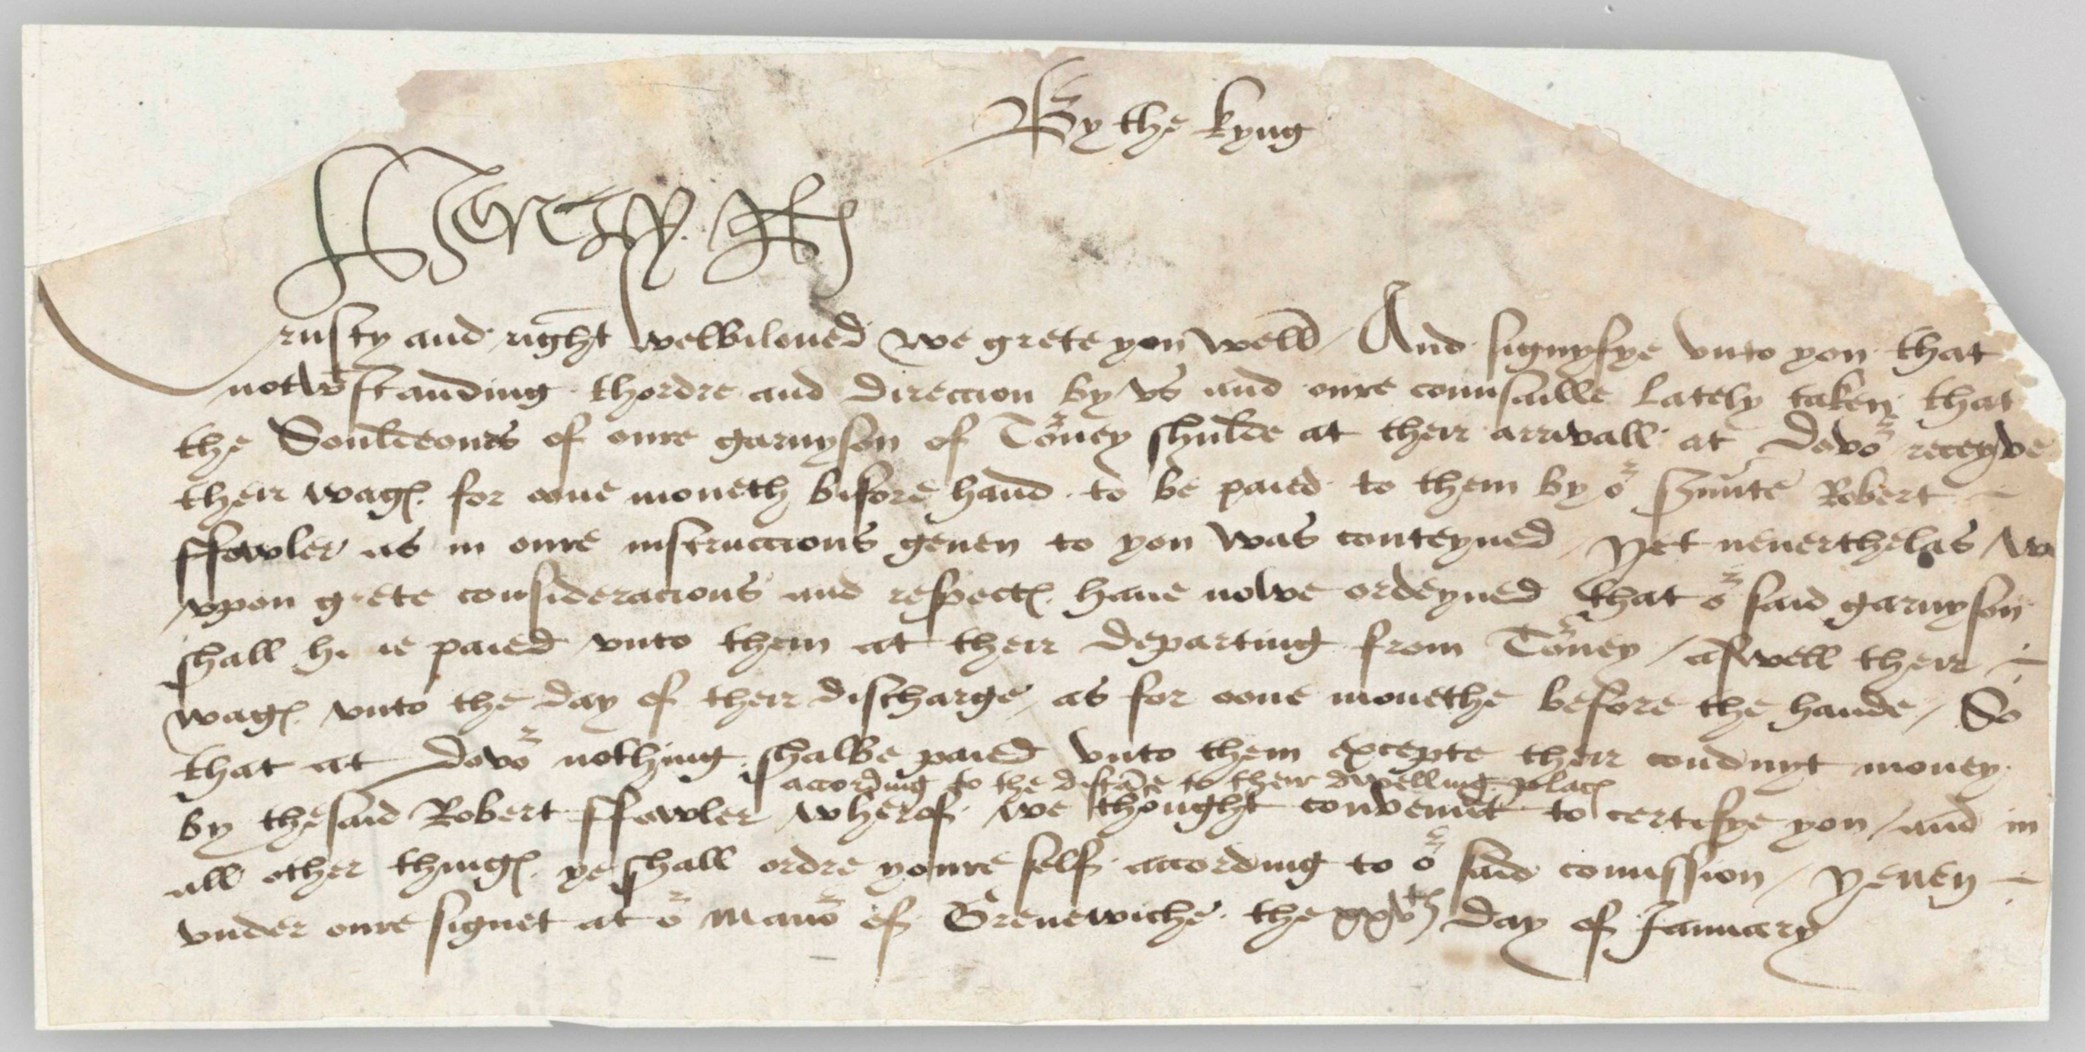 By the kyng
Henry R
Trusty and right welbiloued we grete you well / And signyfye vnto you that
notwtstanding thordre and direccion by vs and oure counsaille lately taken that
the Souldeours of oure garnyson of Torney shulde at their arrivall at Dovor receyve
their wages for oone moneth bifore hand to be paied to them by or sruunte Robert
ffowler as in oure instruccions geuen to you was conteyned / yet neuerthelas / we
vpon grete consideracions and respectes haue nowe ordeyned that or said garnyson
shall haue paied vnto them at their departing from Torney / aswell their
wages vnto the day of their discharge / as for oone monethe before the hande / So
that at Dovor nothing shalbe paied vnto them excepte their conduyt money
according to the distance to their dwelling places
by thesaid Robert ffowler / wherof we thought convenient to certefye you / and in
all other thinges ye shall ordre youre self according to or said comission / yeuen
vnder oure signet at or Manor of Grenewiche the xxvth day of January